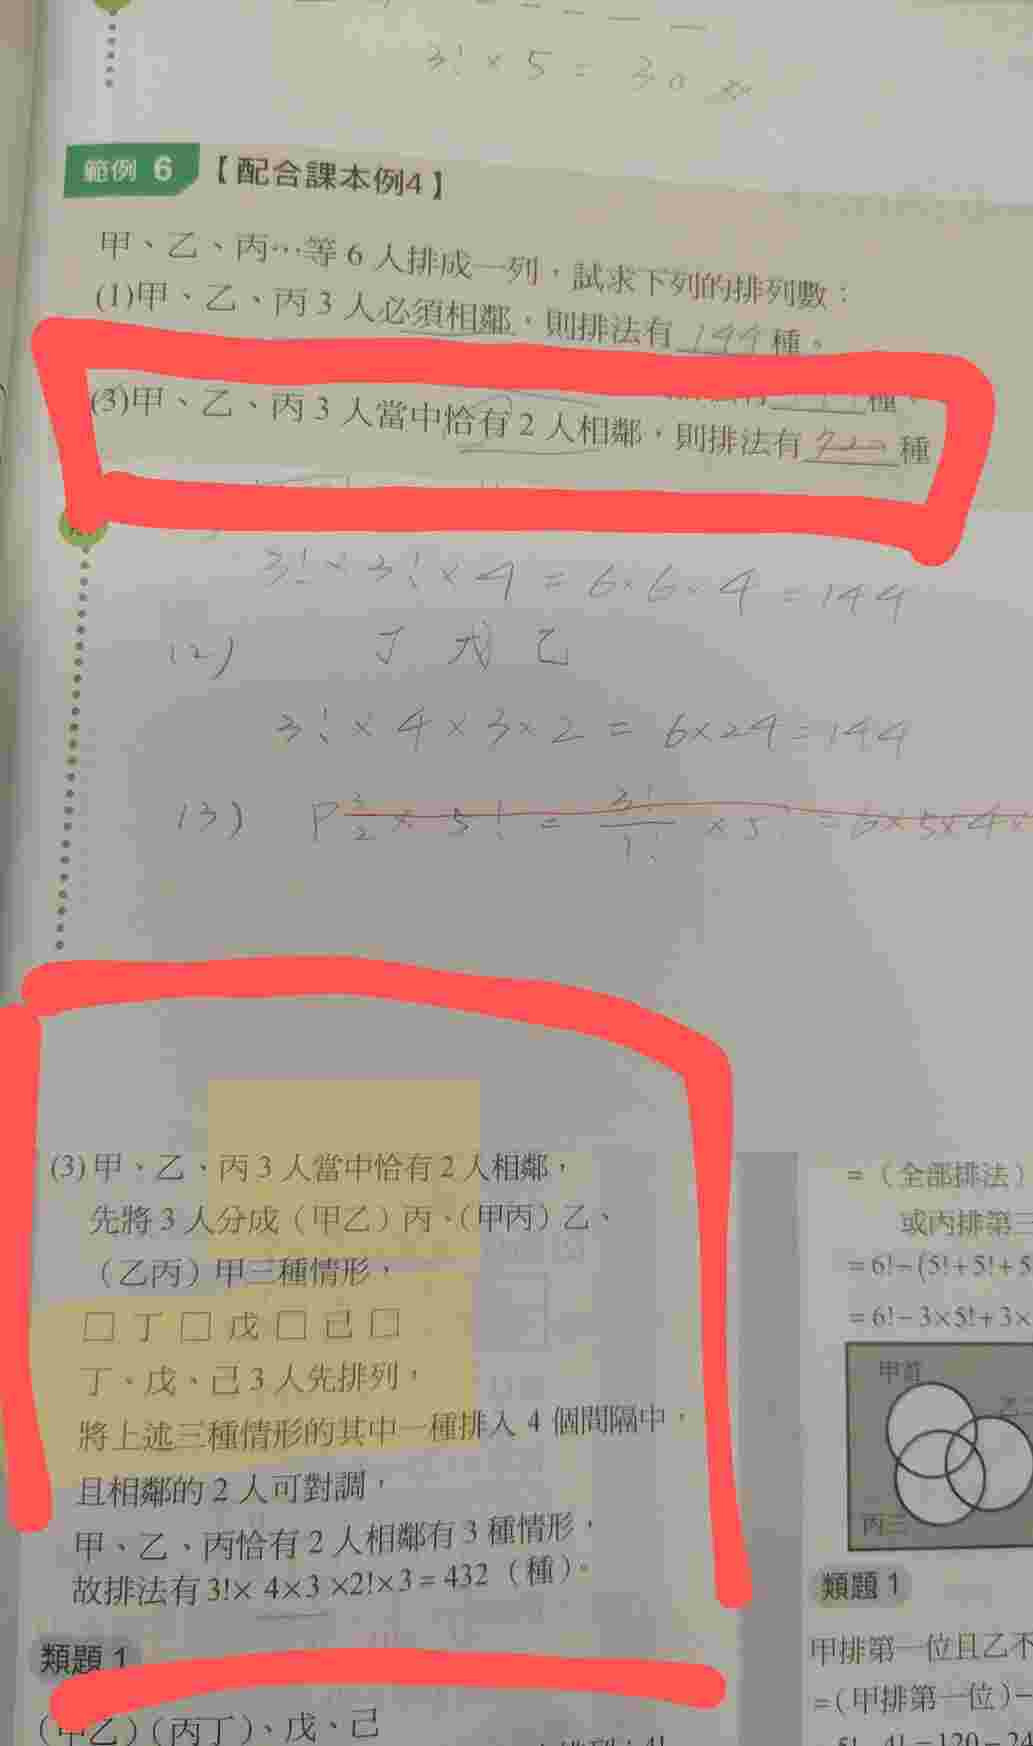 3! × 5 = 30
範例 6 【配合課本例4】
甲、乙、丙…等 6 人排成一列，試求下列的排列數：
(1)甲、乙、丙 3 人必須相鄰，則排法有 144 種。
種、
(3)甲、乙、丙 3 人當中恰有 2 人相鄰，則排法有 720 種
3! × 3! × 4 = 6×6×4 = 144
(2) 丁 戊 己
3! × 4 × 3 × 2 = 6×24 = 144
(3) P 3 2 × 5! = 3! / 1! × 5! = 6×5×4×
(3) 甲、乙、丙 3 人當中恰有 2 人相鄰，
先將 3 人分成（甲乙）丙、（甲丙）乙、
（乙丙）甲三種情形，
□ 丁 □ 戊 □ 己 □
丁、戊、己 3 人先排列，
將上述三種情形的其中一種排入 4 個間隔中，
且相鄰的 2 人可對調，
甲、乙、丙恰有 2 人相鄰有 3 種情形，
故排法有 3!× 4×3 ×2!×3 = 432（種）。
類題 1
（甲乙）（丙丁）、戊、己
=（全部排法）
或丙排第三
= 6!−(5!+5!+5
= 6!−3×5!+3×
甲首
乙二
丙三
類題 1
甲排第一位且乙不
=（甲排第一位）−
5!−4!=120−24